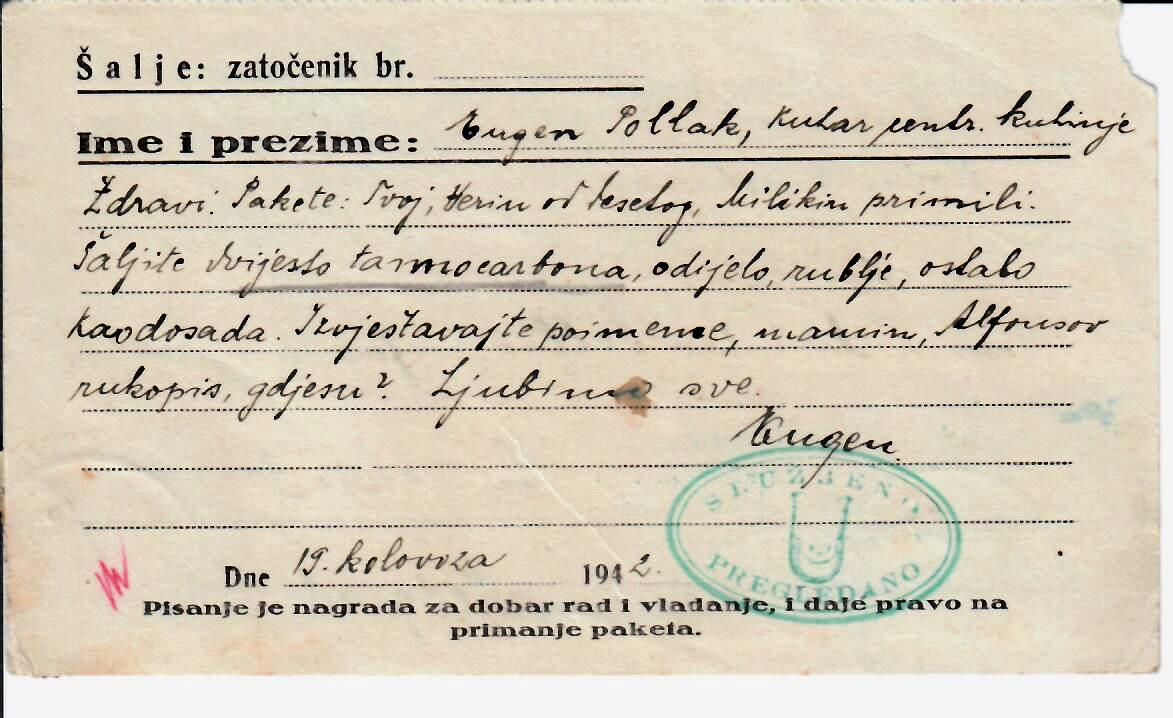 Šalje: zatočenik br.
Ime i prezime: Eugen Pollak, kuhar centr. kuhinje
Zdravi. Pakete: Tvoj, Herin od desetog, Milikin primili.
Šaljite dvijesto tannocarbona, odijelo, rublje, ostalo
kaodosada. Izvještavajte poimence, mamin, Alfonsov
rukopis, gdjesu? Ljubimo sve.
Eugen.
SLUŽBENO
PREGLEDANO
Dne 19. kolovoza 1942.
Pisanje je nagrada za dobar rad i vladanje, i daje pravo na
primanje paketa.